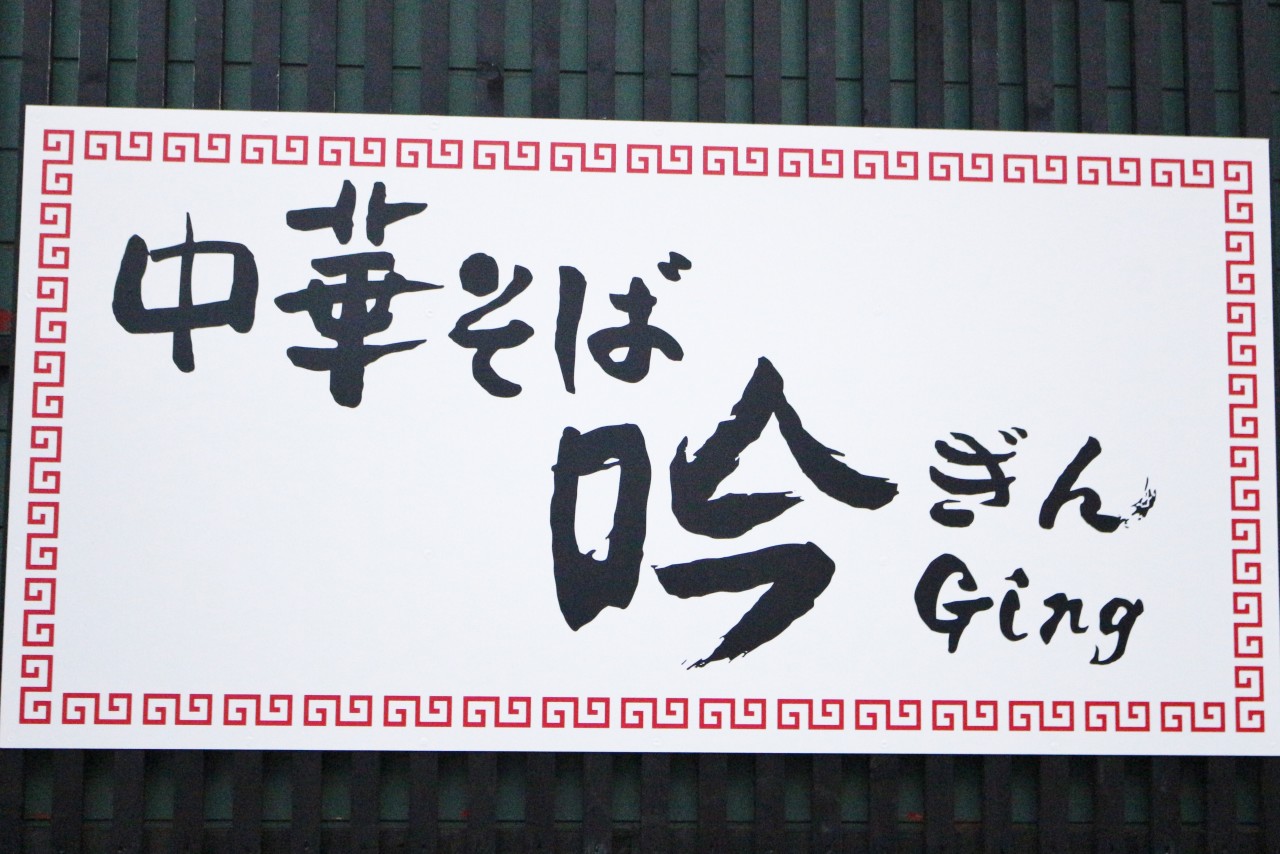 中華そば
吟 ぎん
Ging